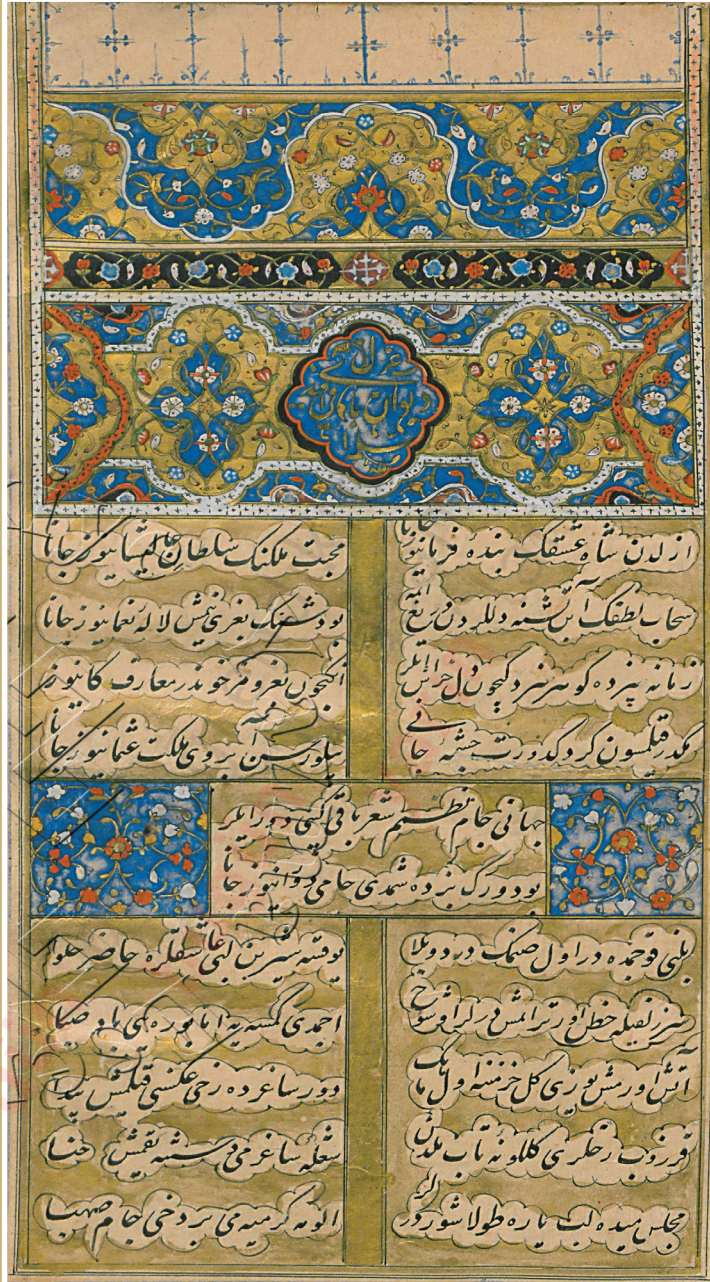 از لدن شاه عشقك بنده فرمانیوز جانا
محبت ملكنك سلطان عالیشانیوز جانا
سحاب لطفك آبن تشنه دللردن دریغ ایتمه
بو دشتك بغری یانمش لاله نعمانیوز جانا
زمانه بزده كوهر سزدكیچون دل خراش ایلر
انكچون بغرومز خوندر معارف كانیوز جانا
مكدر قیلمسون كرد كدورت چشمه جانی
بیلورسن آب روی ملكت عثمانیوز جانا
جهانی جام نظمم شعر باقی كبی دور ایلر
بو بزمك بزده شمدی جامی دورانیوز جانا
بلنی قوجمده در اول صنمك درده دوا
یوقسه شیرین لبی عاشقلره حاضر حلوا
خطن اورتر ایمش دیرلر او شوخ
باد صبا
آتش اورمش یوزی كل خرمننه اول مهك
دور ساغرده رخی عكسنی قیلمش پیدا
قزروب رخلری كللونه تاب ملدن
شعله ساغر می دستنه یقمش حنا
مجلس میده لب یاره طولاشور دیرلر
الومه كرمیه می بر دخی جام صهبا